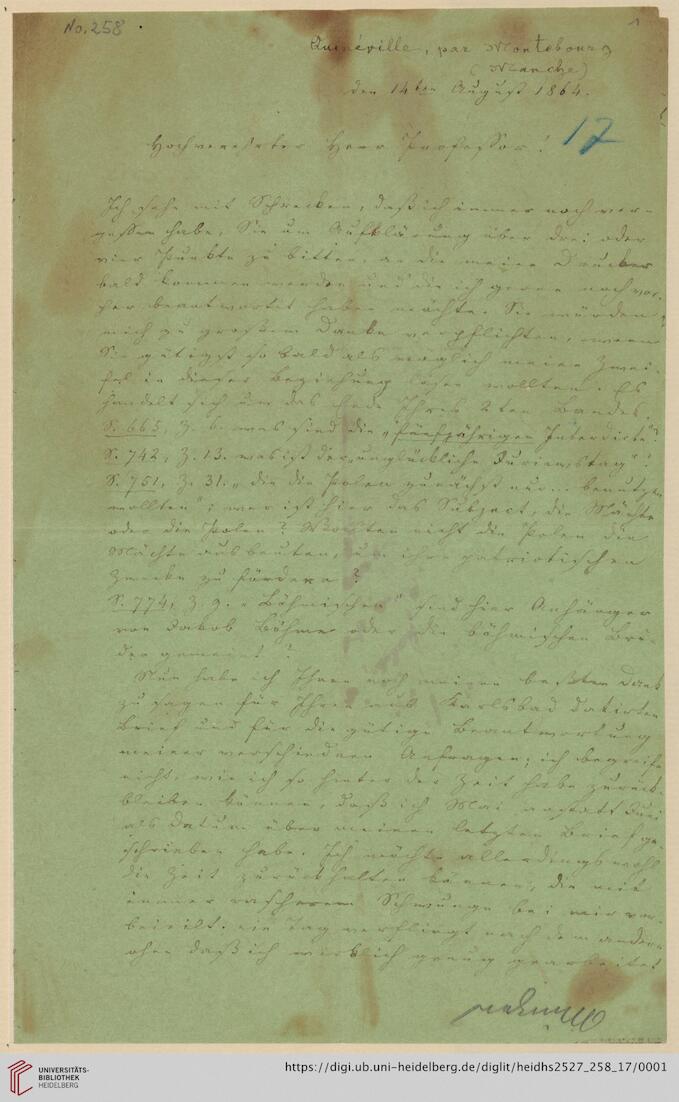 No. 258
1
Quinéville, par Montebourg
(Manche)
den 14ten August 1864.
17
Hochverehrter Herr Professor!
Ich sehe mit Schrecken, daß ich immer noch ver-
gessen habe, Sie um Aufklärung über drei oder
vier Punkte zu bitten, an die meine Drucker
bald kommen werden und die ich gerne noch vor-
her beantwortet haben möchte. Sie würden
mich zu großem Danke verpflichten, wenn
Sie gütigst so bald als möglich meine Zwei-
fel in dieser Beziehung lösen wollten. Es
handelt sich um das Ende Ihres 2ten Bandes.
S. 665, Z. 6. was sind die „fünfjährigen Interdicte"?
S. 742, Z. 13. was ist der „unglückliche Juriustag"?
S. 751, Z. 31. „die die Polen zunächst nur... benutzen
wollten"; wer ist hier das Subject, die Mächte
oder die Polen? Wollten nicht die Polen die
Mächte ausbeuten, um ihre patriotischen
Zwecke zu fördern?
S. 774, Z. 9. „Böhmischen" sind hier Anhänger
von Jakob Böhme oder die böhmischen Brü-
der gemeint?
Nun habe ich Ihnen noch meinen besten Dank
zu sagen für Ihren aus Karlsbad datirten
Brief und für die gütige Beantwortung
meiner verschiednen Anfragen; ich begreife
nicht, wie ich so hinter der Zeit habe zurück-
bleiben können, daß ich Mai anstatt Juni
als Datum über meinen letzten Brief ge-
schrieben habe. Ich möchte allerdings wohl
die Zeit zurückhalten können, die mit
immer rascherem Schwunge bei mir vor-
beieilt. ein Tag verfliegt nach dem andern
ohne daß ich wirklich genug gearbeitet
UNIVERSITÄTS-
BIBLIOTHEK
HEIDELBERG
https://digi.ub.uni-heidelberg.de/diglit/heidhs2527_258_17/0001